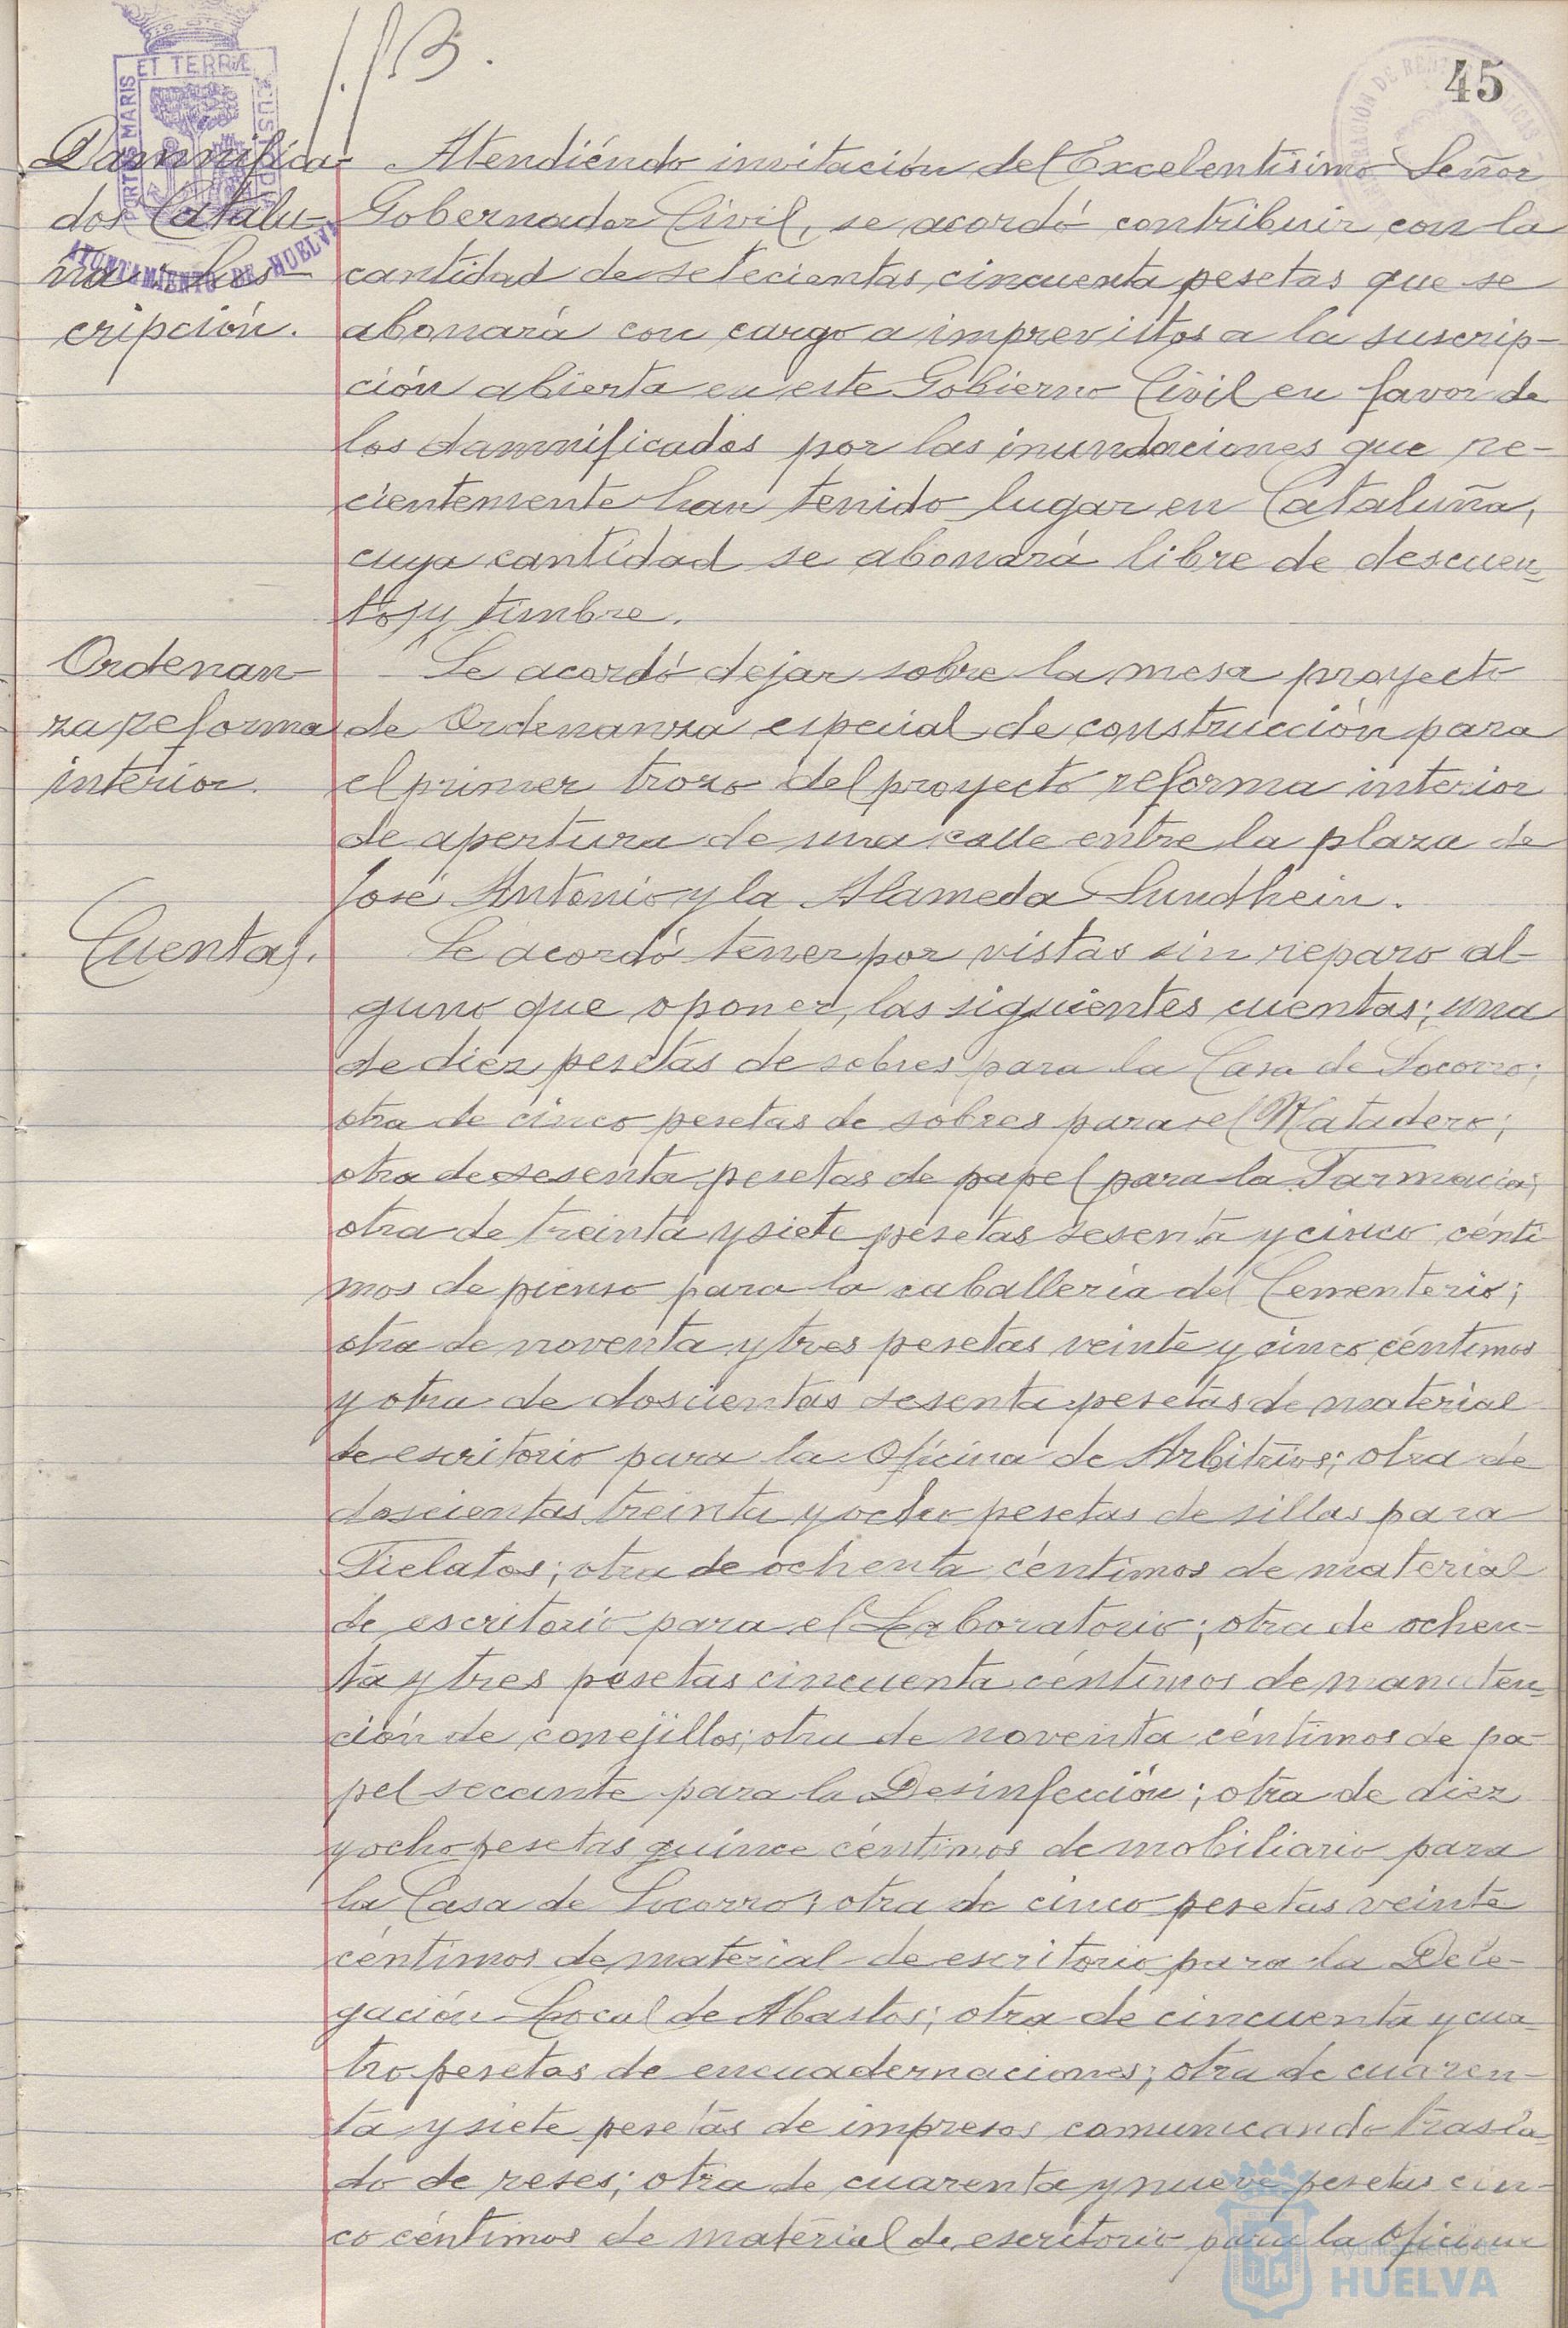 45
Damnifica-
dos Catalu-
ña =
cripción.
Atendiéndo invitación del Excelentísimo Señor
Gobernador Civil, se acordó contribuir con la
cantidad de setecientas cincuenta pesetas que se
abonará con cargo a imprevistos a la suscrip-
ción abierta en este Gobierno Civil en favor de
los damnificados por las inundaciones que re-
cientemente han tenido lugar en Cataluña,
cuya cantidad se abonará libre de descuen-
tos y timbre.
Ordenan-
za reforma
interior.
Se acordó dejar sobre la mesa proyecto
de Ordenanza especial de construcción para
el primer trozo del proyecto reforma interior
de apertura de una calle entre la plaza de
José Antonio y la Alameda Sundhein.
Cuentas.
Se acordó tener por vistas sin reparo al-
guno que oponer, las siguientes cuentas; una
de diez pesetas de sobres para la Casa de Socorro;
otra de cinco pesetas de sobres para el Matadero;
otra de sesenta pesetas de papel para la Farmacia;
otra de treinta y siete pesetas sesenta y cinco cénti-
mos de pienso para la caballería del Cementerio;
otra de noventa y tres pesetas veinte y cinco céntimos
y otra de doscientas sesenta pesetas de material
de escritorio para la Oficina de Arbitrios; otra de
doscientas treinta y ocho pesetas de sillas para
Fielatos; otra de ochenta céntimos de material
de escritorio para el Laboratorio; otra de ochen-
ta y tres pesetas cincuenta céntimos de manuten-
ción de conejillos; otra de noventa céntimos de pa-
pel secante para la Desinfección; otra de diez
y ocho pesetas quince céntimos de mobiliario para
la Casa de Socorro; otra de cinco pesetas veinte
céntimos de material de escritorio para la Dele-
gación Local de Abastos; otra de cincuenta y cua-
tro pesetas de encuadernaciones; otra de cuaren-
ta y siete pesetas de impresos comunicando trasla-
do de reses; otra de cuarenta y nueve pesetas cin-
co céntimos de material de escritorio para la Oficina
ET TERRÆ
MARIS
AYUNTAMIENTO DE HUELVA
Ayuntamiento de
HUELVA